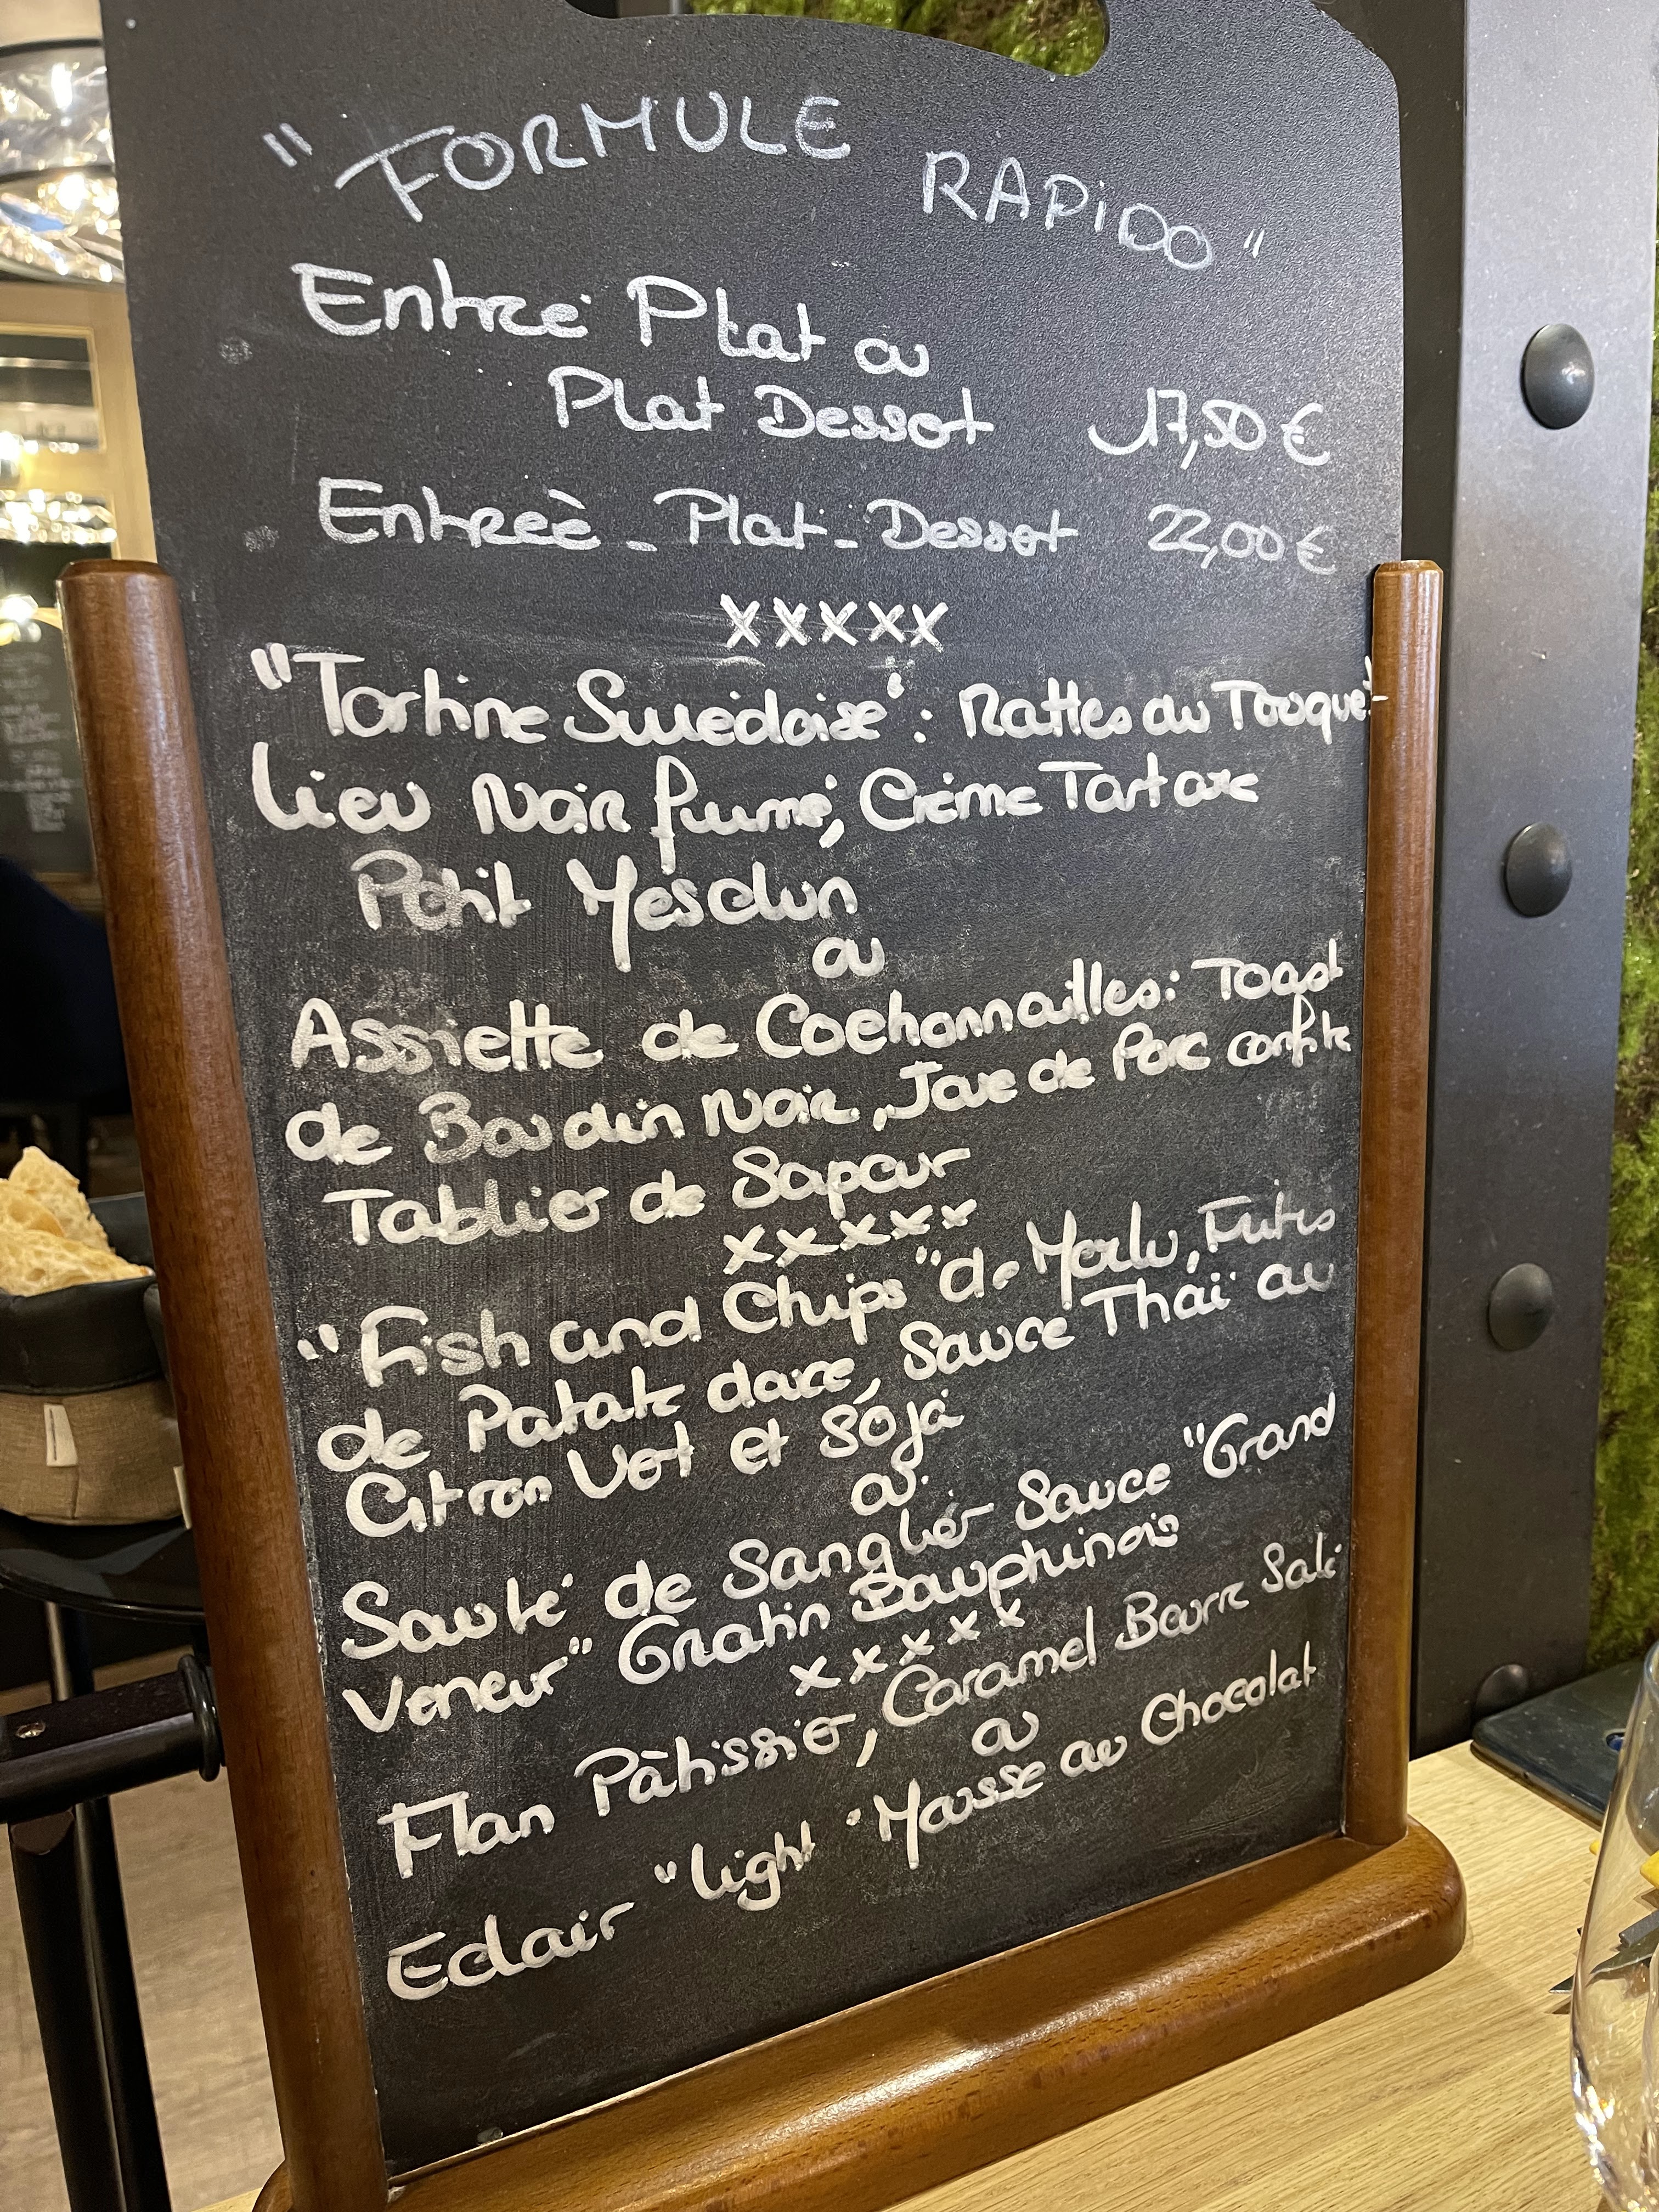 "FORMULE RAPIDO"
Entrée Plat ou
Plat Dessert 17,50 €
Entreè - Plat - Dessert 22,00 €
xxxxx
"Tartine Suédoise" : Rattes du Touquet
Lieu Noir fumé, Crème Tartare
Petit Mesclun
ou
Assiette de Cochonnailles : Toast
de Boudin Noir, Joue de Porc confite
Tablier de Sapeur
xxxxx
"Fish and Chips" de Merlu, Frites
de Patate douce, Sauce Thaï au
Citron Vert et Sója
ou
Sauté de Sanglier Sauce "Grand
Veneur" Gratin Dauphinois
xxxxx
Flan Pâtissier, Caramel Beurre Salé
ou
Eclair "light" Mousse au Chocolat